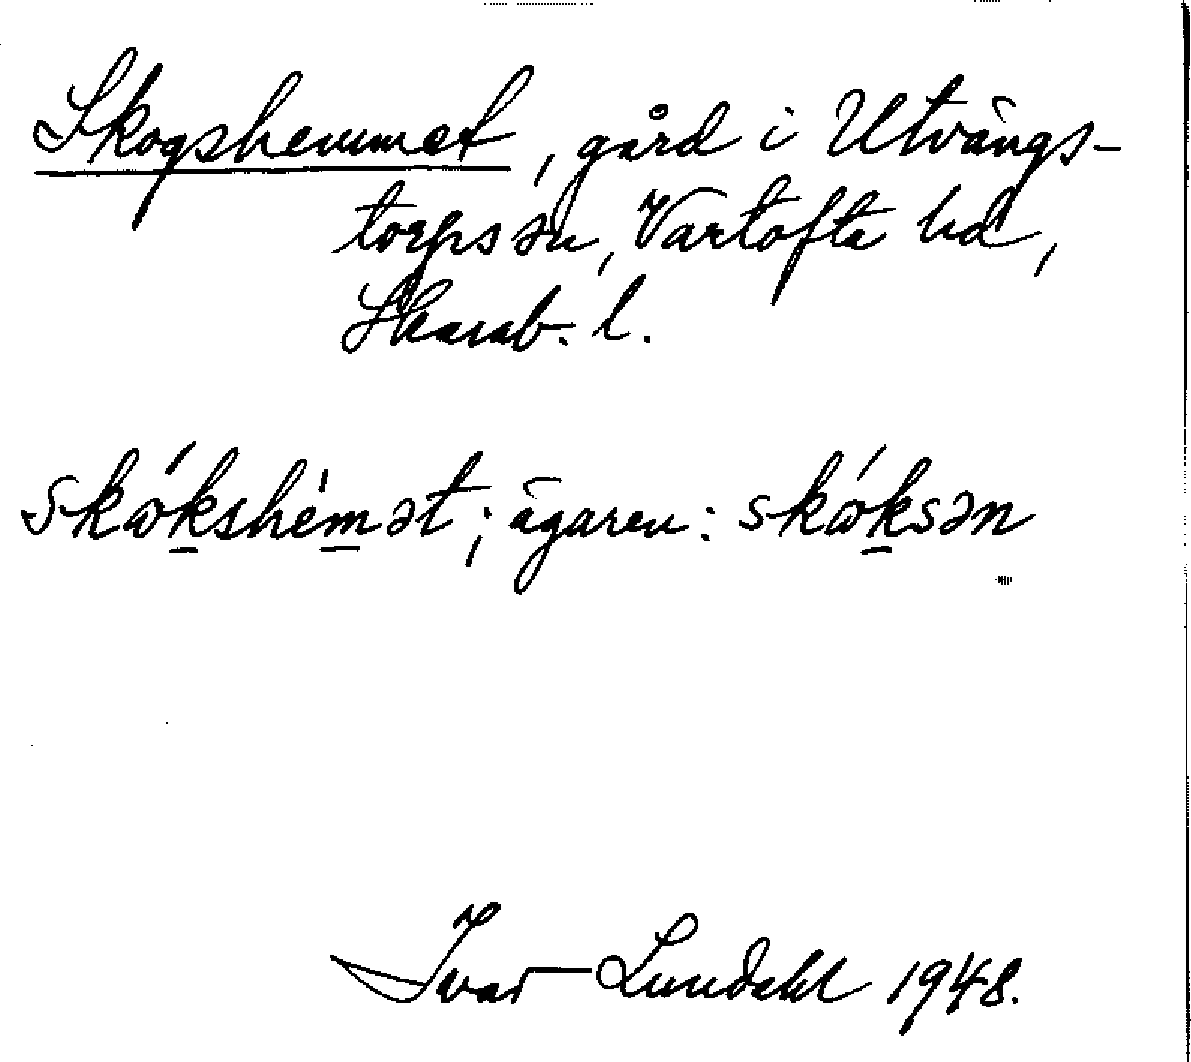 Skogshemmet, gård i Utvängs-
torps sn, Vartofta hd,
Skarab. l.
skɷ́k̲shèm̲ət; ägaren: skɷ́k̲sən
Ivar Lundahl 1948.